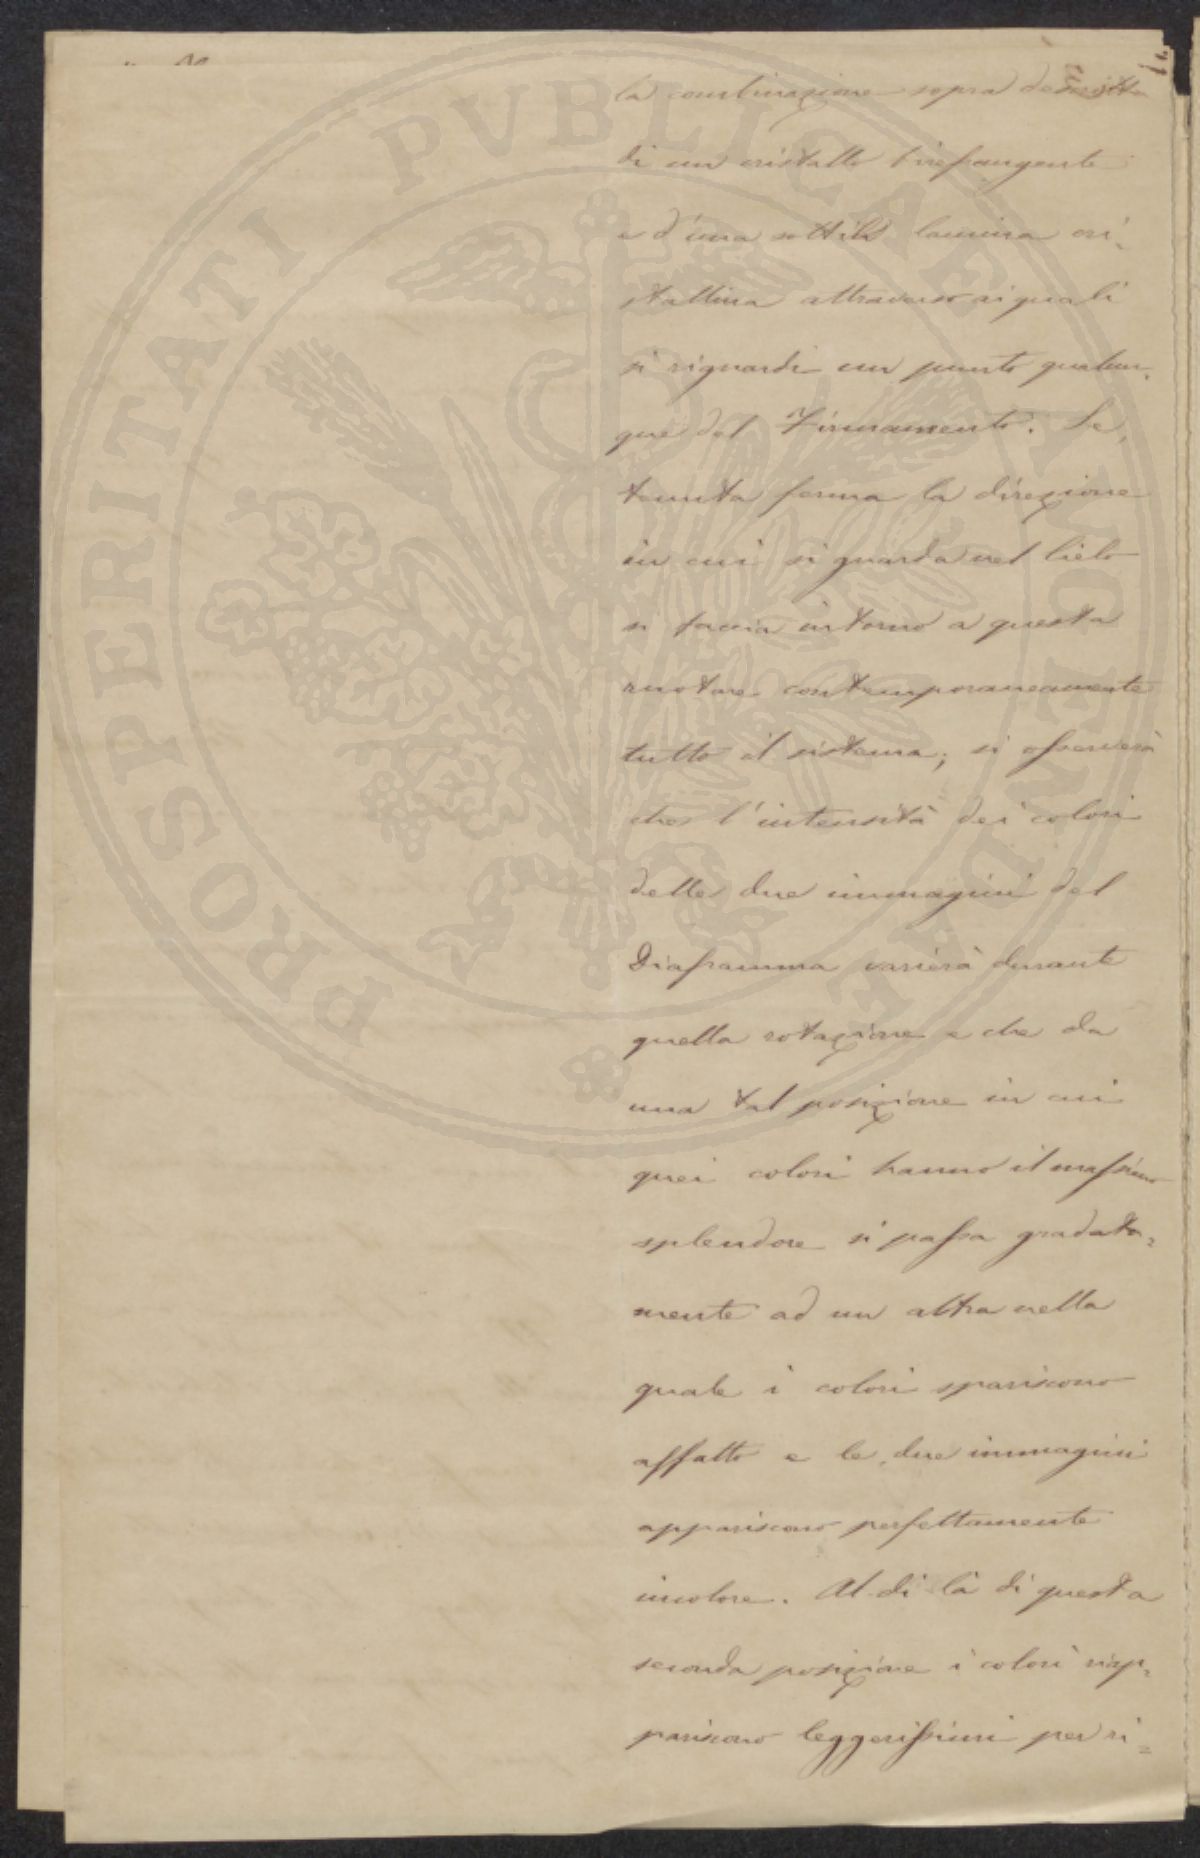 PROSPERITATI PVBLICAE AVGENDAE
la combinazione sopra descritta
di un cristallo birefrangente
e d'una sottile lamina cri-
stallina attraverso ai quali
si riguardi un punto qualun-
que del Firmamento. Se,
tenuta ferma la direzione
in cui si guarda nel Cielo
si faccia intorno a questa
ruotare contemporaneamente
tutto il sistema; si osserverà
che l'intensità dei colori
delle due immagini del
Diaframma varierà durante
quella rotazione e che da
una tal posizione in cui
quei colori hanno il massimo
splendore si passa gradata=
mente ad un altra nella
quale i colori spariscono
affatto e le due immagini
appariscono perfettamente
incolore. Al di là di questa
seconda posizione i colori riap=
pariscono leggerissimi per ri=